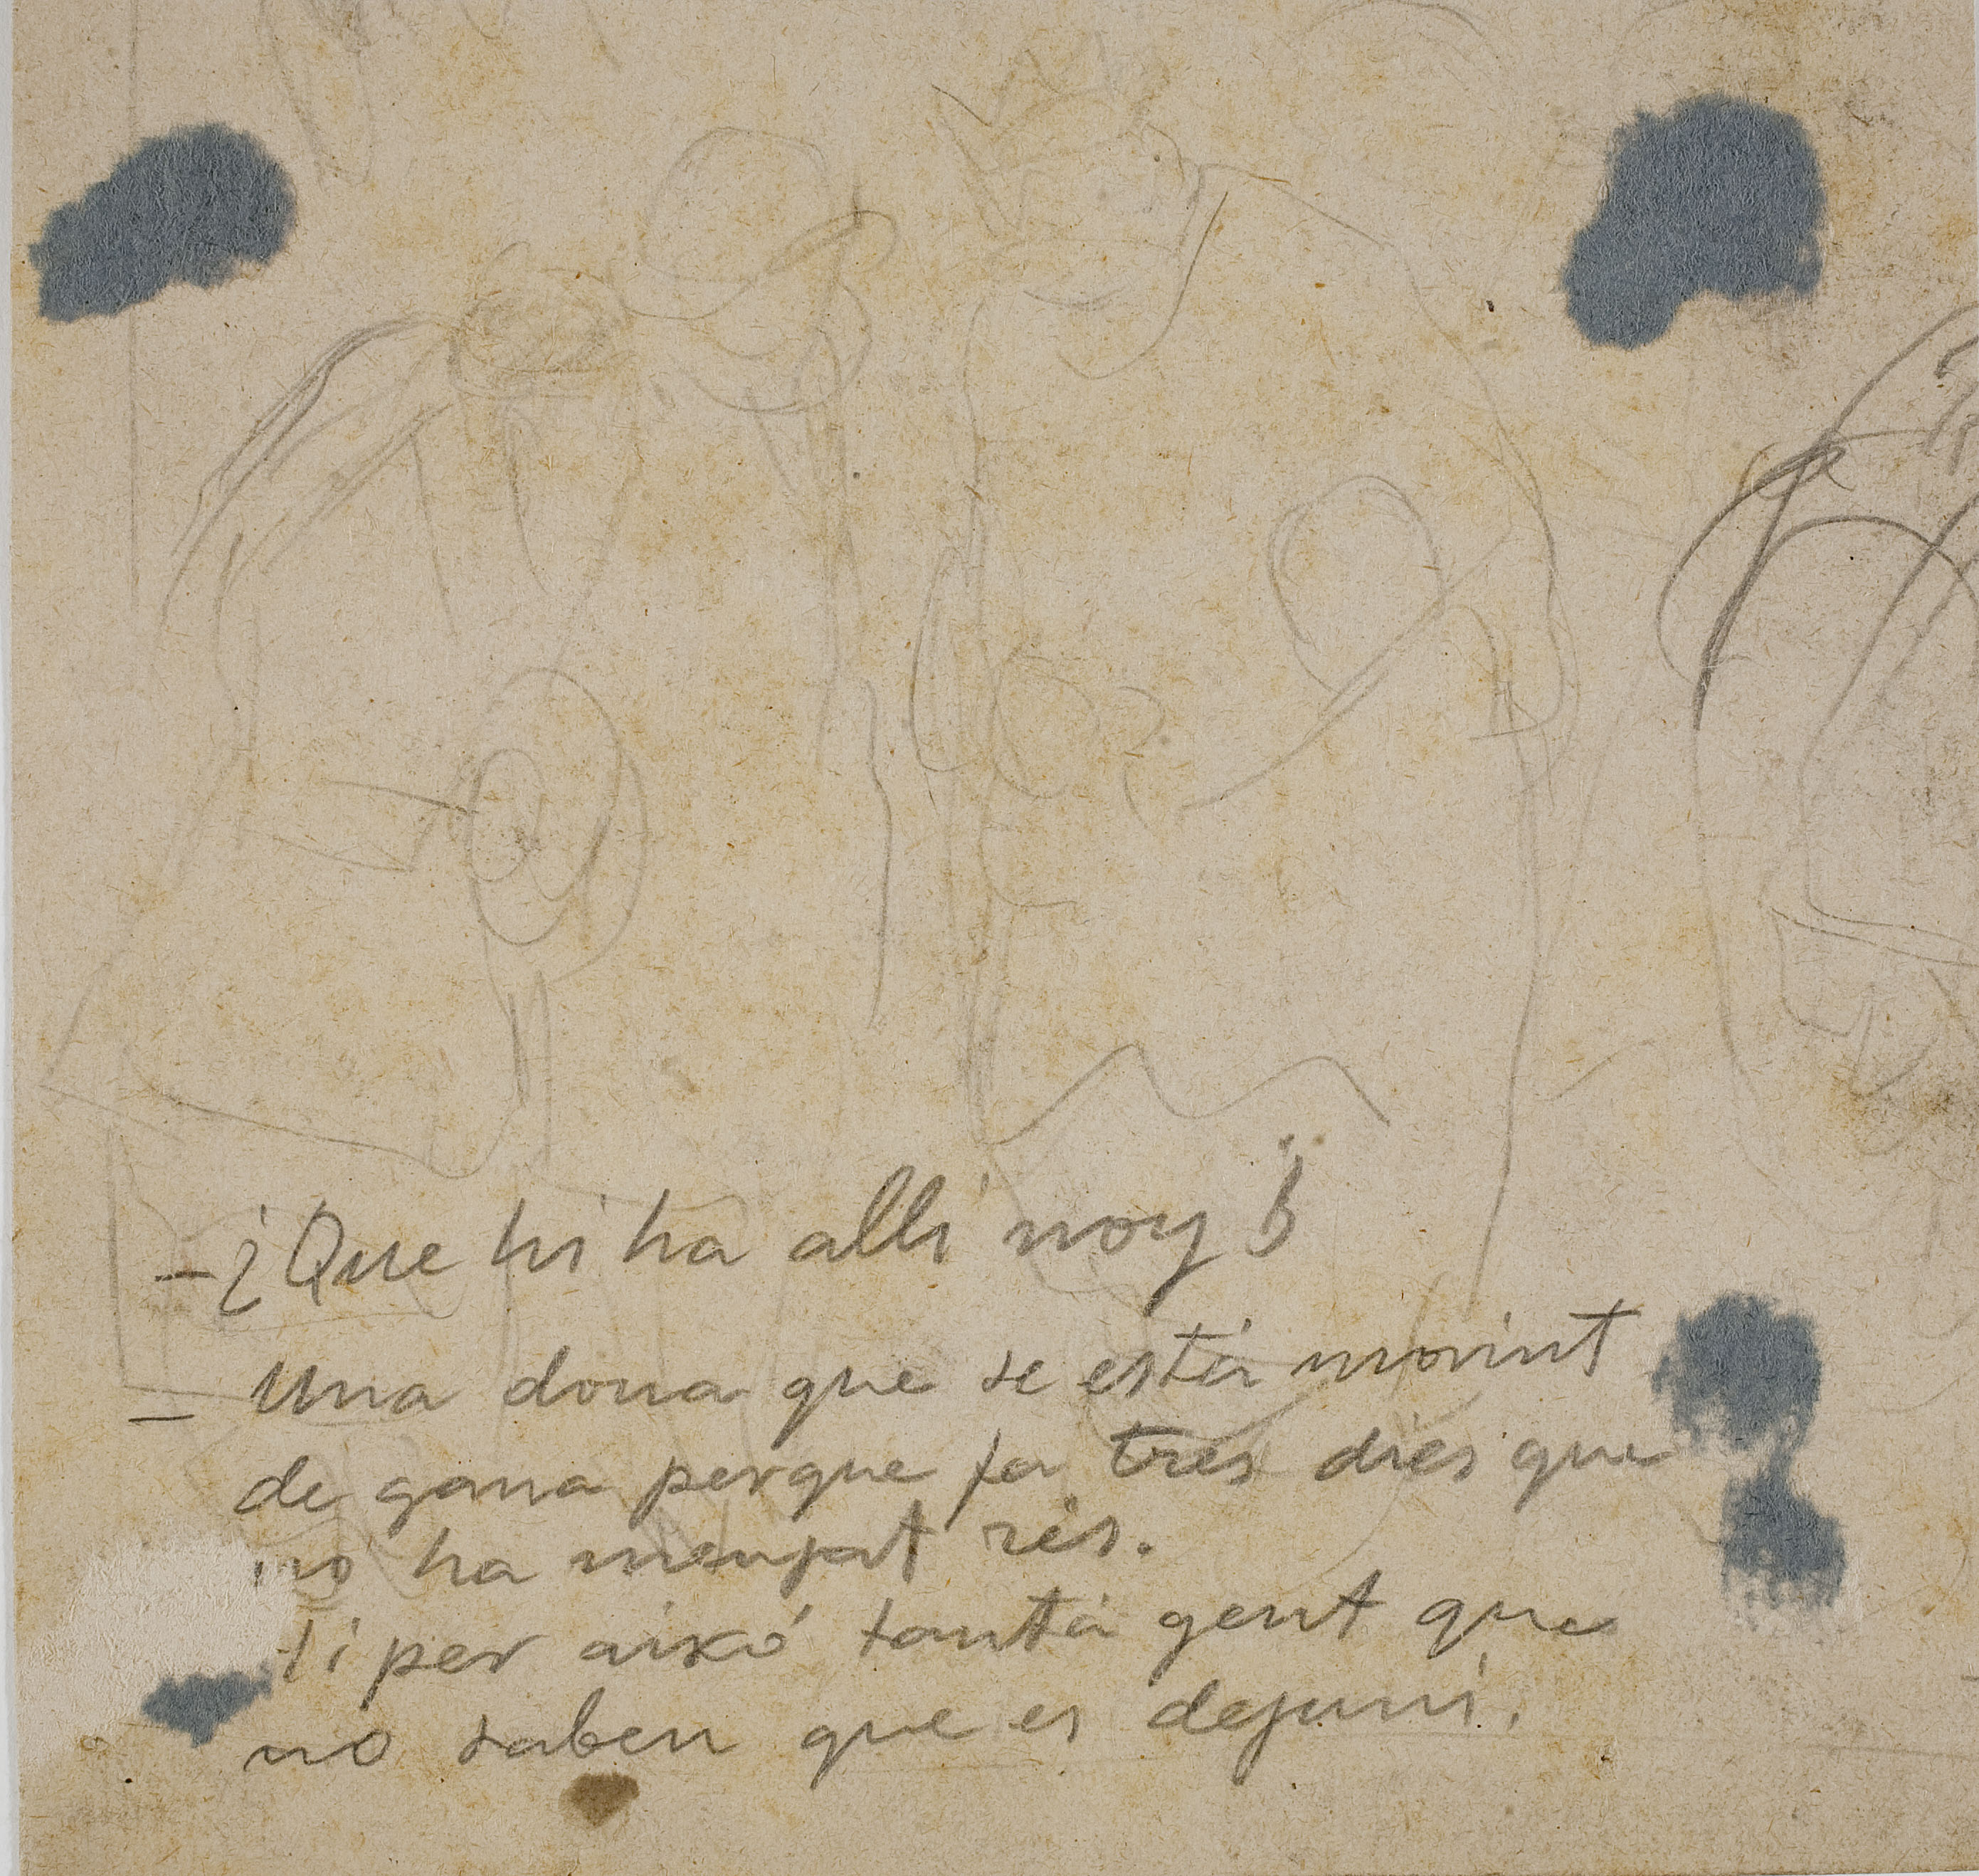 – ¿Que hi ha allí noy?
– Una dona que se está morint
de gana perque fa tres dies que
no ha menjat rés.
per aixó tanta gent que
no saben que es dejuni.